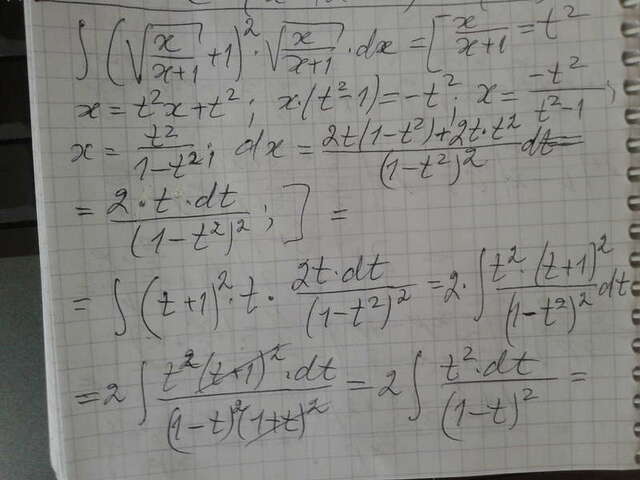 ∫ (√(x/(x+1)) + 1)² · √(x/(x+1)) · dx = [ x/(x+1) = t²
x = t²x + t² ; x·(t²-1) = -t² ; x = -t²/(t²-1) ;
x = t²/(1-t²) ; dx = (2t(1-t²) + 2t·t²)/(1-t²)² dt =
= 2·t·dt/(1-t²)² ; ] =
= ∫ (t+1)² · t · 2t·dt/(1-t²)² = 2·∫ t²·(t+1)²/(1-t²)² dt
= 2 ∫ t²(t+1)²·dt/((1-t)²(1+t)²) = 2 ∫ t²·dt/(1-t)² =